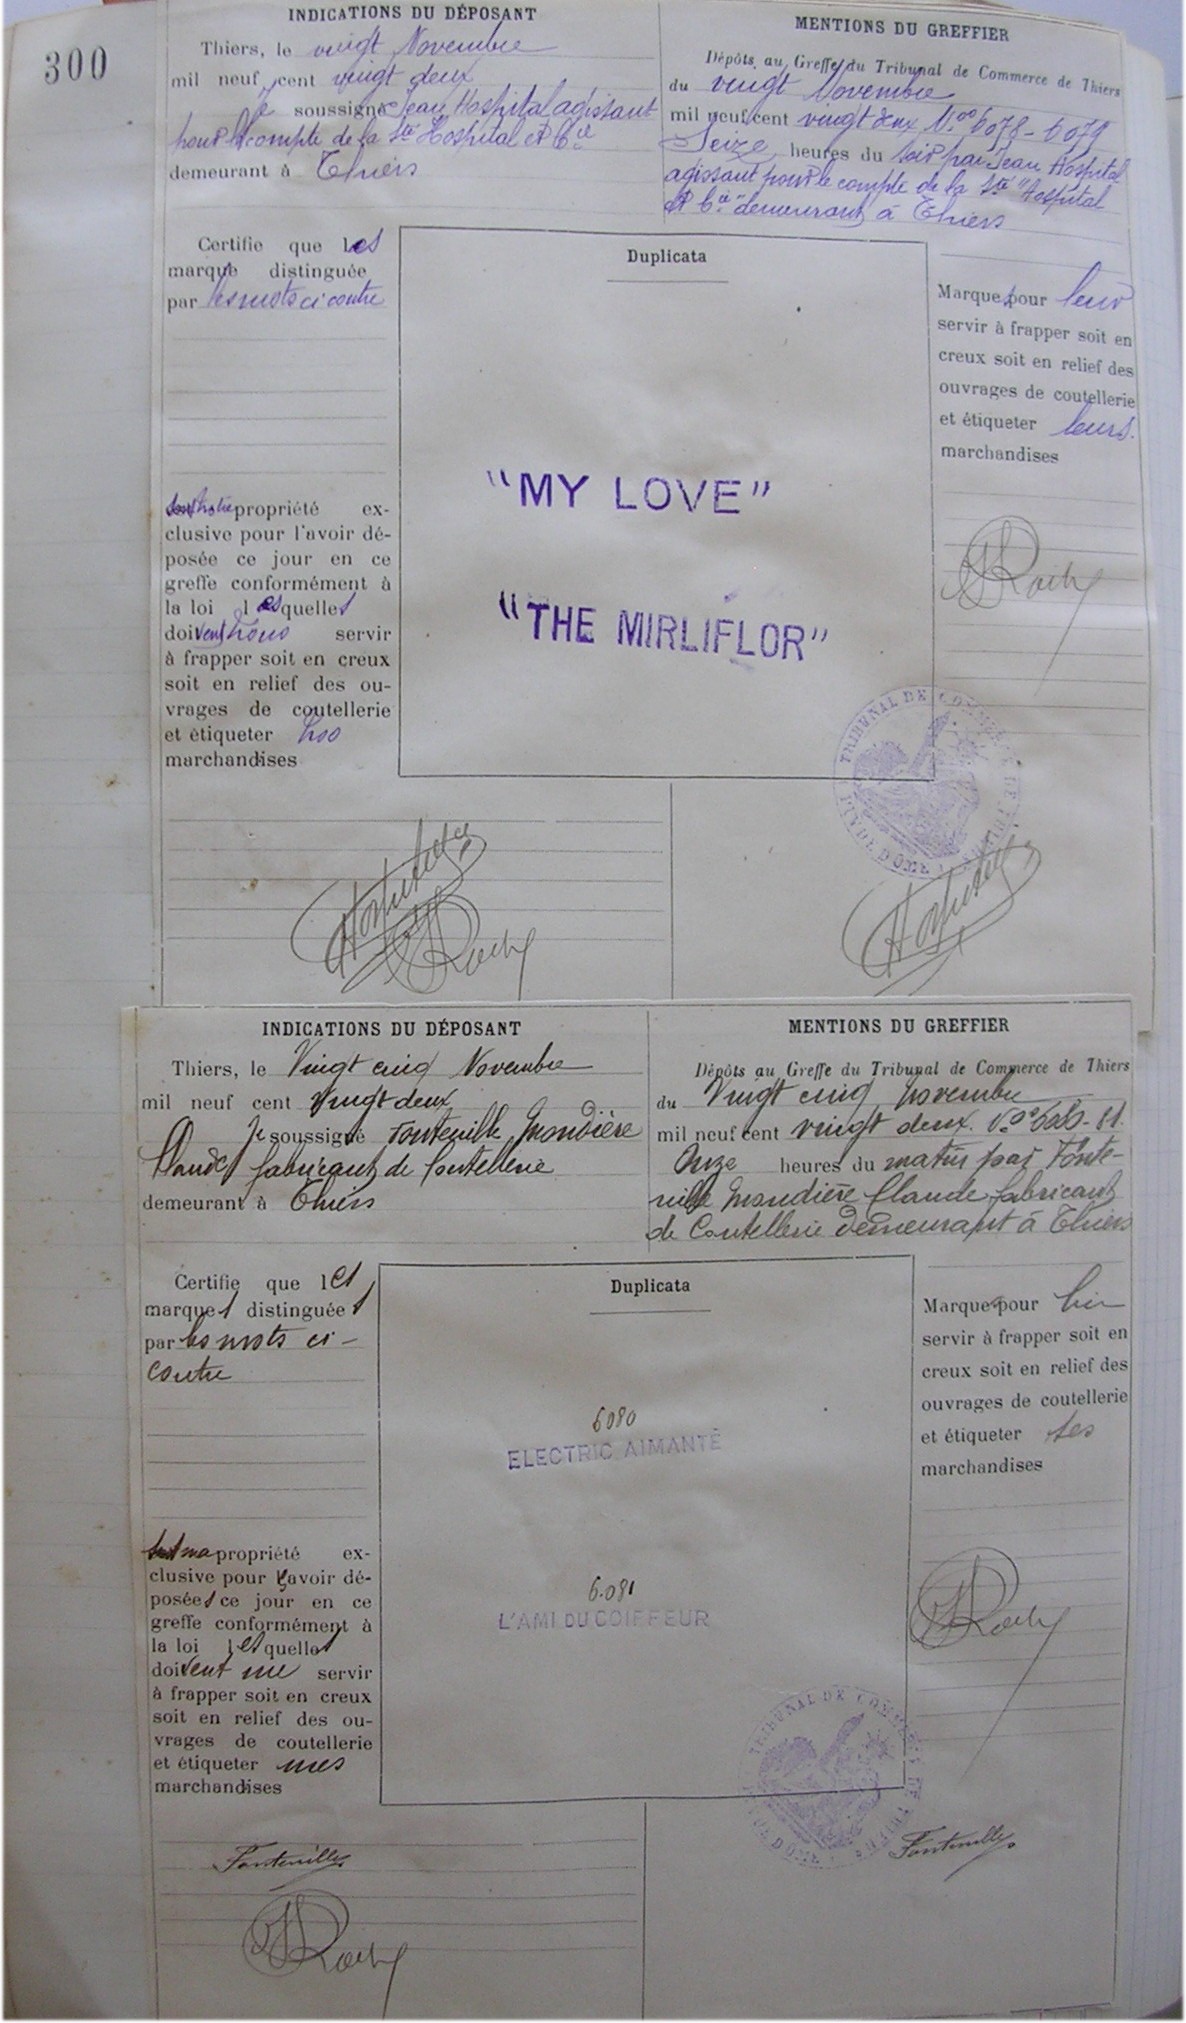 300
INDICATIONS DU DÉPOSANT
Thiers, le vingt Novembre
mil neuf cent vingt deux
Je soussigné Jean Hospital agissant
pour le compte de la Sté Hospital et Cie
demeurant à Thiers
MENTIONS DU GREFFIER
Dépôts au Greffe du Tribunal de Commerce de Thiers
du vingt Novembre
mil neuf cent vingt deux Nos 6078-6079
Seize heures du soir par Jean Hospital
agissant pour le compte de la Sté "Hospital
et Cie" demeurant à Thiers
Certifie que les
marque distinguée
par les mots ci contre
sont notre propriété ex-
clusive pour l'avoir dé-
posée ce jour en ce
greffe conformément à
la loi lesquelles
doivent nous servir
à frapper soit en creux
soit en relief des ou-
vrages de coutellerie
et étiqueter nos
marchandises
Duplicata
"MY LOVE"
"THE MIRLIFLOR"
Marques pour leur
servir à frapper soit en
creux soit en relief des
ouvrages de coutellerie
et étiqueter leurs
marchandises
Roche
TRIBUNAL DE COMMERCE DE THIERS
PUY DE DÔME
Hospital
Roche
Hospital
INDICATIONS DU DÉPOSANT
Thiers, le Vingt cinq Novembre
mil neuf cent vingt deux
Je soussigné Fontenille Mondière
Claude fabricant de Coutellerie
demeurant à Thiers
MENTIONS DU GREFFIER
Dépôts au Greffe du Tribunal de Commerce de Thiers
du Vingt cinq novembre
mil neuf cent vingt deux. Nos 6080-81.
Onze heures du matin par Fonte-
nille Mondière Claude fabricant
de Coutellerie demeurant à Thiers
Certifie que les
marques distinguées
par les mots ci-
contre
sont ma propriété ex-
clusive pour l'avoir dé-
posées ce jour en ce
greffe conformément à
la loi lesquelles
doivent me servir
à frapper soit en creux
soit en relief des ou-
vrages de coutellerie
et étiqueter mes
marchandises
Duplicata
6080
ELECTRIC AIMANTÉ
6.081
L'AMI DU COIFFEUR
Marques pour lui
servir à frapper soit en
creux soit en relief des
ouvrages de coutellerie
et étiqueter ses
marchandises
Roche
TRIBUNAL DE COMMERCE DE THIERS
PUY DE DÔME
Fontenille
Roche
Fontenille